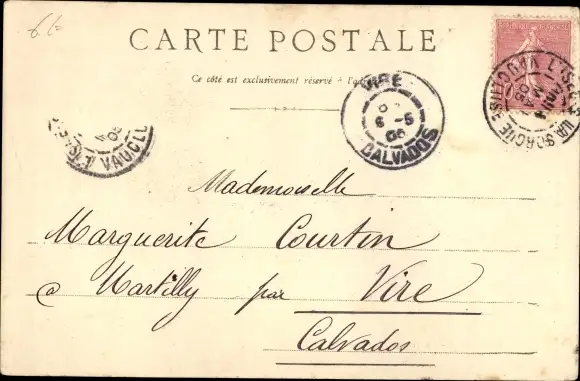 6.6
CARTE POSTALE
Ce côté est exclusivement réservé à l'adresse
VIRE
6 - 5
06
CALVADOS
VAUCLUSE
L'ISLE-SUR-LA SORGUE
Mademoiselle
Marguerite Courtin
a Martilly par Vire
Calvados